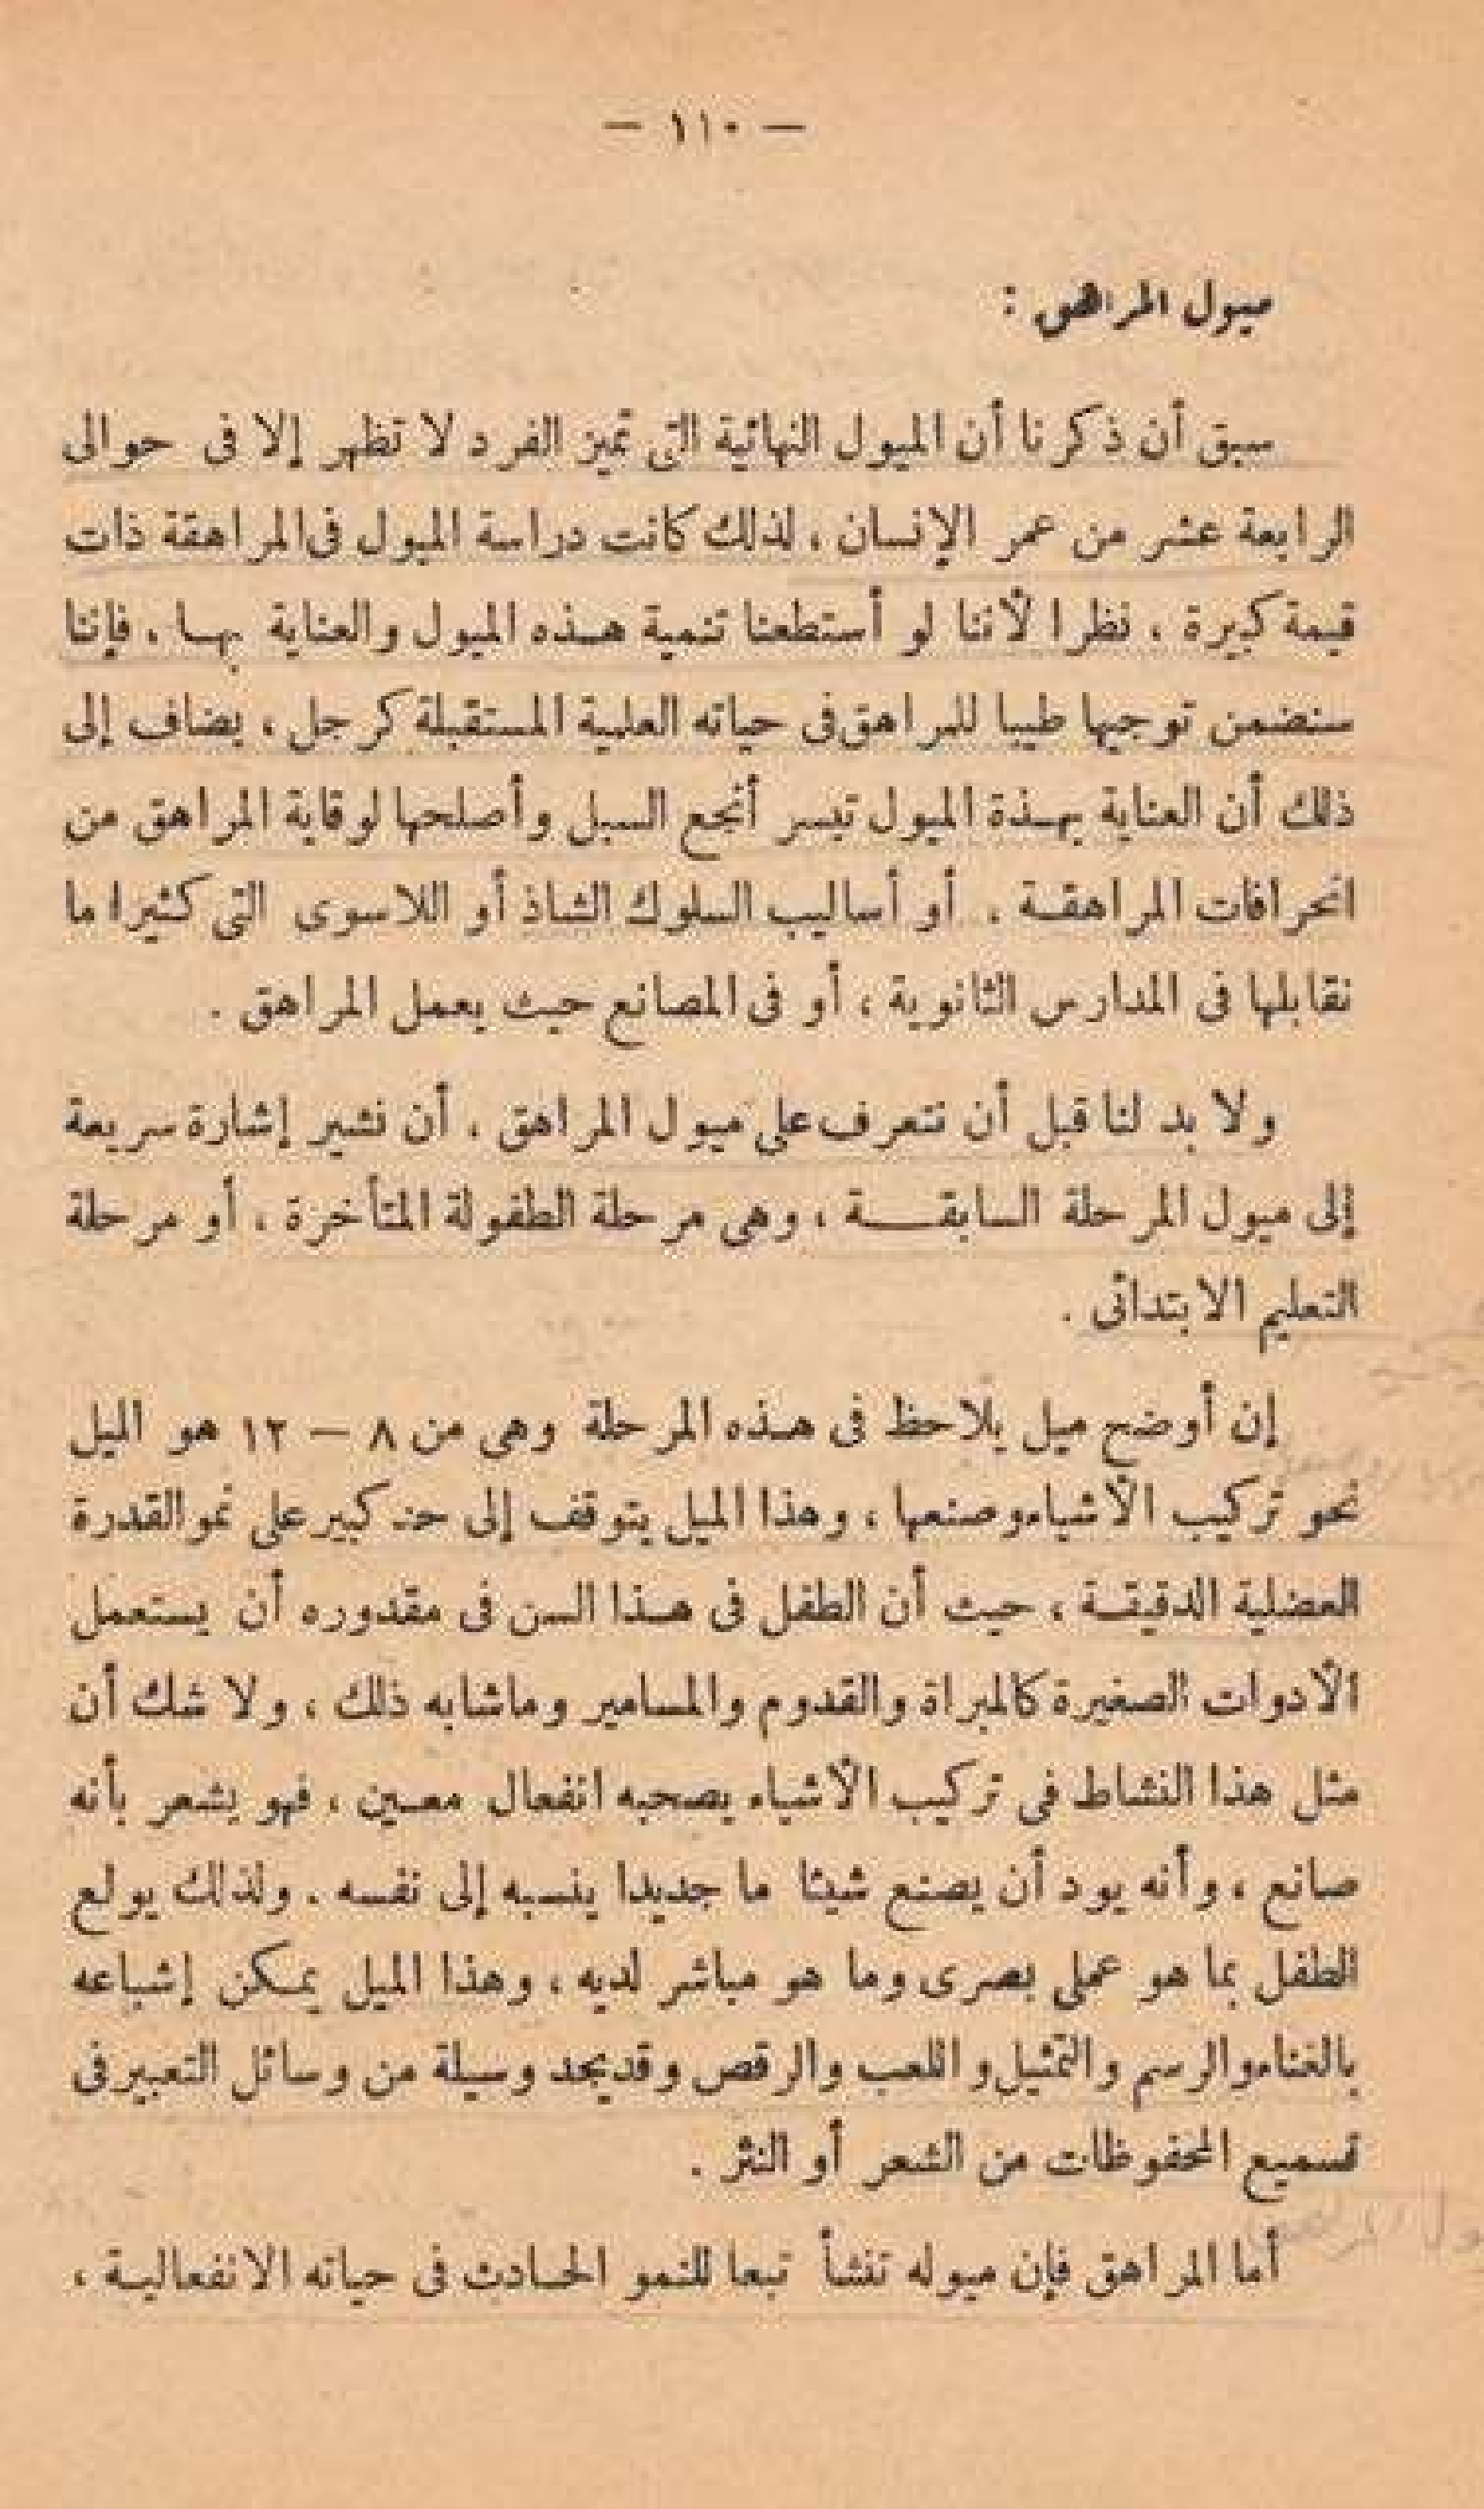 — ١١٠ —
ميول المراهق :
سبق أن ذكرنا أن الميول النهائية التى تميز الفرد لا تظهر إلا فى حوالى
الرابعة عشر من عمر الإنسان ، لذلك كانت دراسة الميول فى المراهقة ذات
قيمة كبيرة ، نظرا لأننا لو أستطعنا تنمية هذه الميول والعناية بها ، فإننا
سنضمن توجيها طيبا للمراهق فى حياته العلمية المستقبلة كرجل ، يضاف إلى
ذلك أن العناية بهذة الميول تيسر أنجع السبل وأصلحها لوقاية المراهق من
انحرافات المراهقة ، أو أساليب السلوك الشاذ أو اللاسوى التى كثيرا ما
نقابلها فى المدارس الثانوية ، أو فى المصانع حيث يعمل المراهق .
ولا بد لنا قبل أن نتعرف على ميول المراهق ، أن نشير إشارة سريعة
إلى ميول المرحلة السابقة ، وهى مرحلة الطفولة المتأخرة ، أو مرحلة
التعليم الابتدائى .
إن أوضح ميل يلاحظ فى هذه المرحلة وهى من ٨ — ١٢ هو الميل
نحو تركيب الأشياء وصنعها ، وهذا الميل يتوقف إلى حد كبير على نمو القدرة
العضلية الدقيقة ، حيث أن الطفل فى هذا السن فى مقدوره أن يستعمل
الأدوات الصغيرة كالمبراة والقدوم والمسامير وماشابه ذلك ، ولا شك أن
مثل هذا النشاط فى تركيب الأشياء يصحبه انفعال معين ، فهو يشعر بأنه
صانع ، وأنه يود أن يصنع شيئا ما جديدا ينسبه إلى نفسه . ولذلك يولع
الطفل بما هو عملى بصرى وما هو مباشر لديه ، وهذا الميل يمكن إشباعه
بالغناء والرسم والتمثيل و اللعب والرقص وقد يجد وسيلة من وسائل التعبير فى
تسميع المحفوظات من الشعر أو النثر .
أما المراهق فإن ميوله تنشأ تبعا للنمو الحادث فى حياته الانفعالية ،